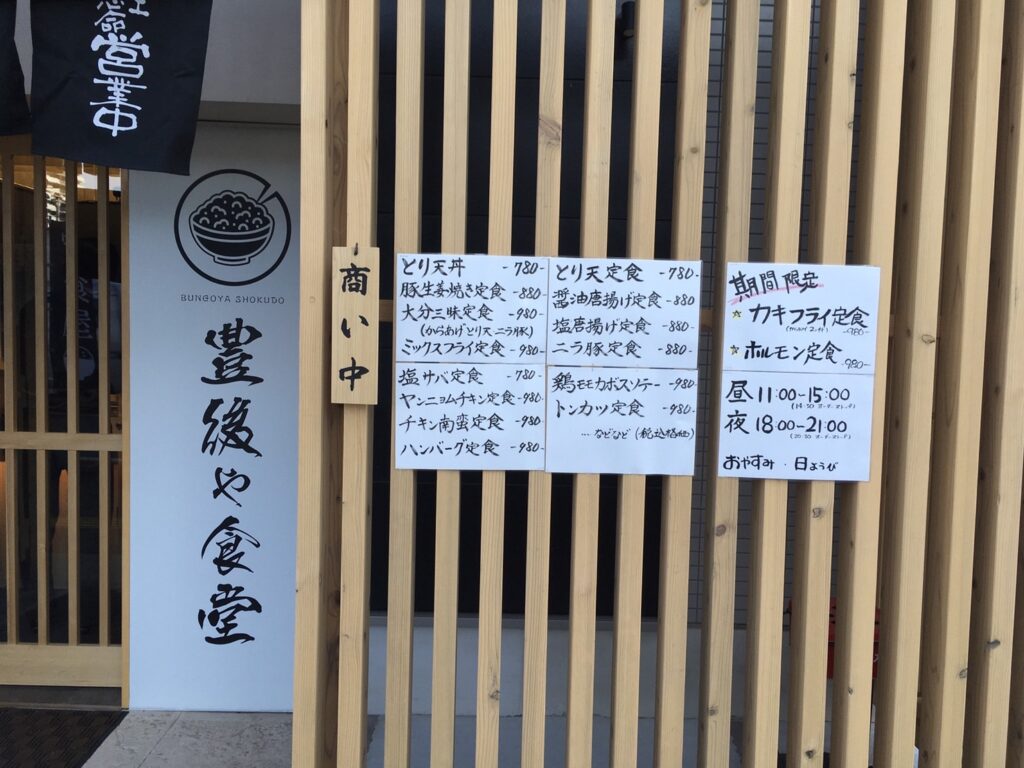 命営業中
BUNGOYA SHOKUDO
豊後や食堂
商い中
とり天丼 -780-
豚生姜焼き定食 -880-
大分三昧定食 -980-
(からあげ とり天 ニラ豚)
ミックスフライ定食 -980-
塩サバ定食 -780-
ヤンニョムチキン定食 -980-
チキン南蛮定食 -980-
ハンバーグ定食 -980-
とり天定食 -780-
醤油唐揚げ定食 -880-
塩唐揚げ定食 -880-
ニラ豚定食 -880-
鶏モモカボスソテー -980-
トンカツ定食 -980-
...などなど (税込価格)
期間限定
☆カキフライ定食
-980-
☆ホルモン定食 -980-
昼 11:00-15:00
夜 18:00-21:00
おやすみ・日ようび